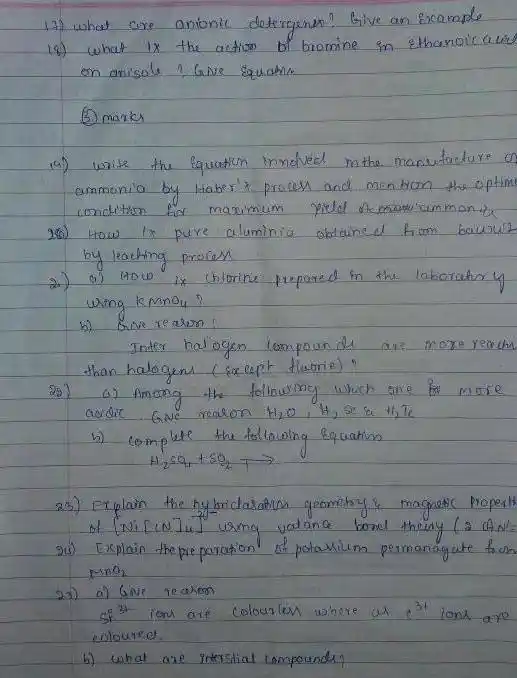 17) what are anionic detergents? Give an Example
18) what is the action of bromine in Ethanoic acid
on anisole ? Give Equation
③ marks
19) write the Equation involved in the manufacture of
ammonia by Haber's process and mention the optimum
condition for maximum yield of ammonia
20) How is pure alumina obtained from bauxite
by leaching process
2.) a) How is chlorine prepared in the laboratory
using KMnO4 ?
b) Give reason :
Inter halogen compounds are more reactive
than halogens (except fluorie) ?
22) a) Among the following which one is more
acidic Give reason H2O, H2Se & H2Te
b) complete the following Equation
H2SO4 + SO2 →
23) Explain the hybridaration geometry & magnetic Property
of [Ni[CN]4]2- using valance bond theory (2 AN=
24) Explain the preparation of potassium permanagate from
MnO2
25) a) Give reason
3+ ions are colourless where as 3+ ions are
coloured.
b) what are Interstial compounds?